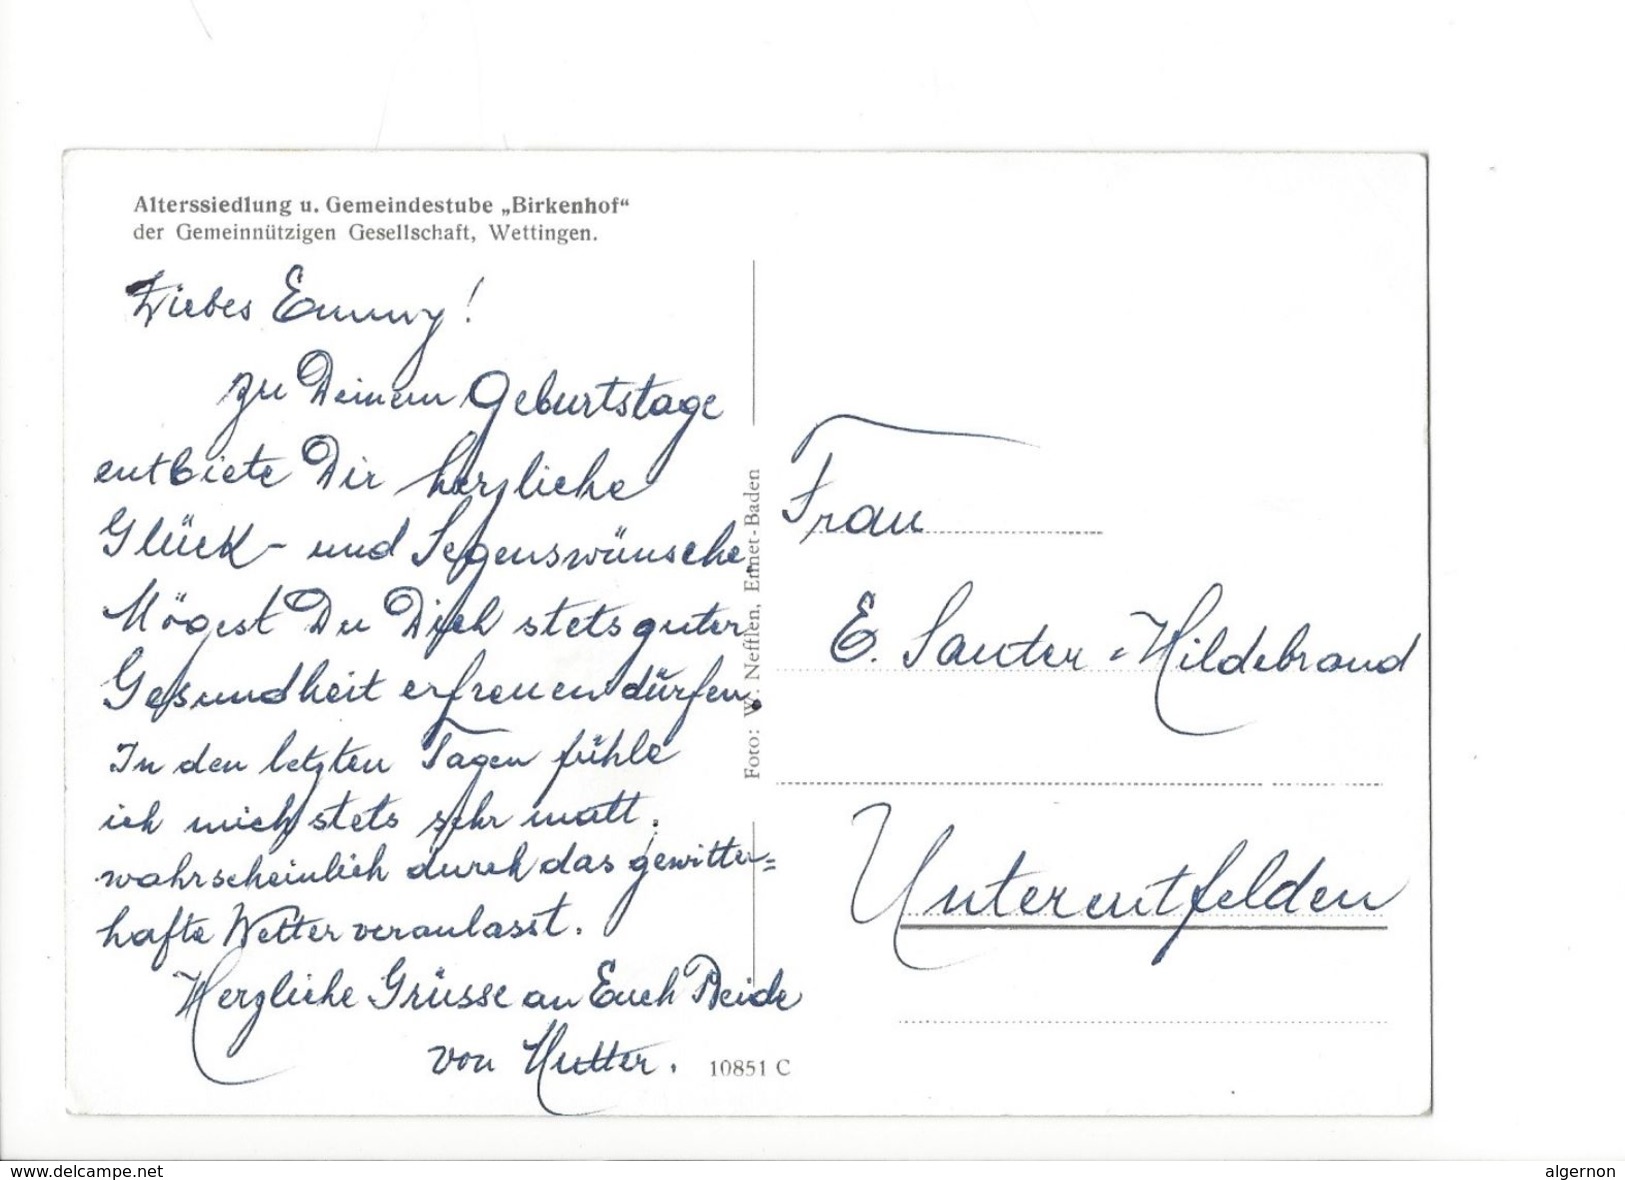 Alterssiedlung u. Gemeindestube „Birkenhof“
der Gemeinnützigen Gesellschaft, Wettingen.
Liebes Emmy!
zu Deinem Geburtstage
entbiete Dir herzliche
Glück- und Segenswünsche.
Mögest Du Dich stets guter
Gesundheit erfreuen dürfen.
In den letzten Tagen fühle
ich mich stets sehr matt.
wahrscheinlich durch das gewitter=
hafte Wetter veranlasst.
Herzliche Grüsse an Euch Beide
von Mutter.
10851 C
Foto: W. Nefflen, Ennet-Baden
Frau
E. Sauter-Hildebrand
Unterentfelden
www.delcampe.net
algernon